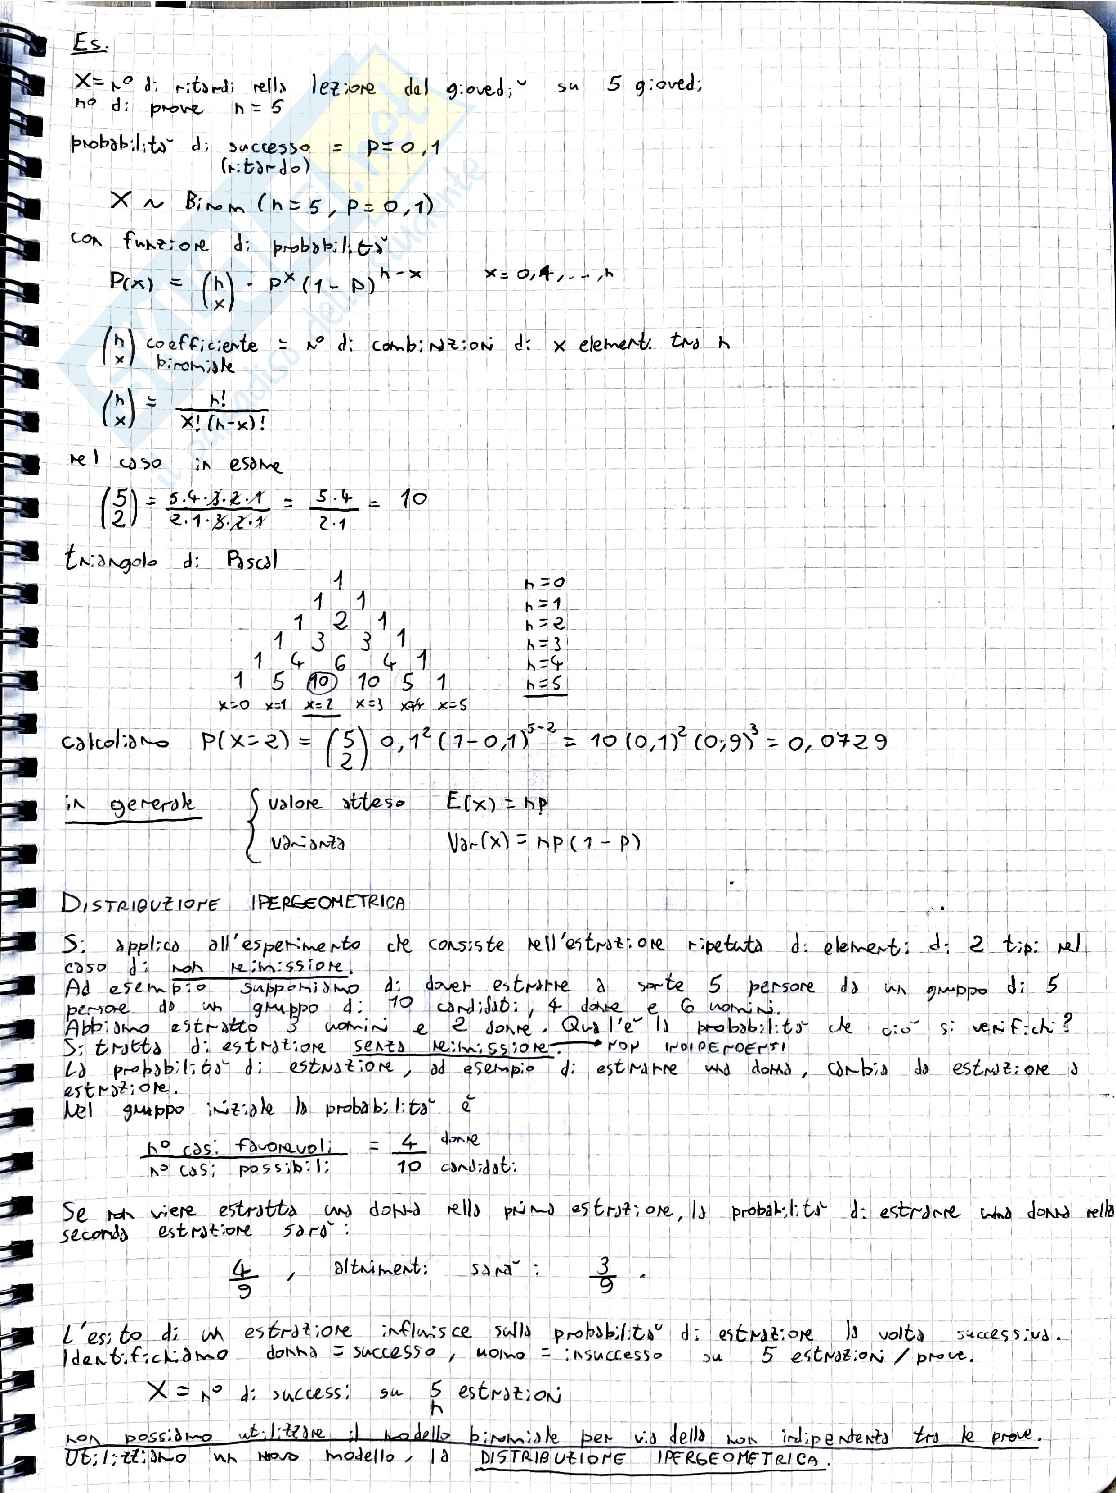 Es.
X = n° di ritardi nella lezione del giovedì su 5 giovedì
n° di prove n = 5
probabilità di successo = p = 0,1
(ritardo)
X ~ Binom (n = 5, p = 0,1)
con funzione di probabilità
P(x) = (n x) · p^x (1 - p)^n-x x = 0,1,...,n
(n x) coefficiente = n° di combinazioni di x elementi tra n
binomiale
(n x) = n! / x! (n-x)!
nel caso in esame
(5 2) = 5·4·3·2·1 / 2·1·3·2·1 = 5·4 / 2·1 = 10
triangolo di Pascal
1 n=0
1 1 n=1
1 2 1 n=2
1 3 3 1 n=3
1 4 6 4 1 n=4
1 5 10 10 5 1 n=5
x=0 x=1 x=2 x=3 x=4 x=5
calcoliamo P(X=2) = (5 2) 0,1² (1-0,1)^5-2 = 10 (0,1)² (0,9)³ = 0,0729
in generale { valore atteso E(x) = np
varianza Var(x) = np (1 - p)
DISTRIBUZIONE IPERGEOMETRICA
Si applica all'esperimento che consiste nell'estrazione ripetuta di elementi di 2 tipi nel
caso di non reimissione.
Ad esempio supponiamo di dover estrarre a sorte 5 persone da un gruppo di 5
persone da un gruppo di 10 candidati, 4 donne e 6 uomini.
Abbiamo estratto 3 uomini e 2 donne. Qual'è la probabilità che ciò si verifichi?
Si tratta di estrazione senza reimissione. → NON INDIPENDENTI
La probabilità di estrazione, ad esempio di estrarre una donna, cambia da estrazione a
estrazione.
Nel gruppo iniziale la probabilità è
n° casi favorevoli = 4 donne
n° casi possibili 10 candidati
Se non viene estratta una donna nella prima estrazione, la probabilità di estrarre una donna nella
seconda estrazione sarà:
4/9 , altrimenti sarà: 3/9 .
L'esito di un estrazione influisce sulla probabilità di estrazione la volta successiva.
Identifichiamo donna = successo, uomo = insuccesso su 5 estrazioni / prove.
X = n° di successi su 5 estrazioni
n
non possiamo utilizzare il modello binomiale per via della non indipendenta tra le prove.
Utilizziamo un nuovo modello, la DISTRIBUZIONE IPERGEOMETRICA.